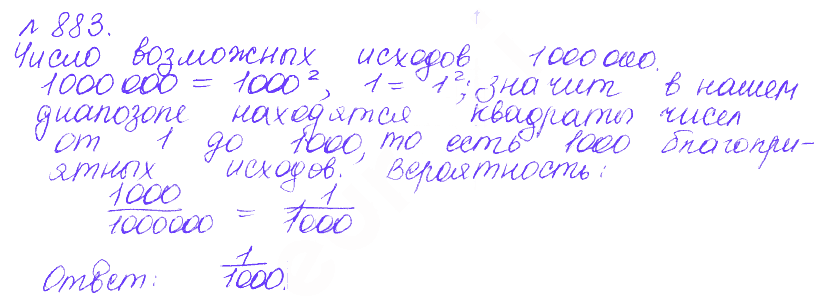 № 883.
Число возможных исходов 1000 000.
1000 000 = 1000², 1 = 1²; значит в нашем
диапозоне находятся квадраты чисел
от 1 до 1000, то есть 1000 благопри-
ятных исходов. Вероятность:
1000/1000000 = 1/1000
Ответ: 1/1000.